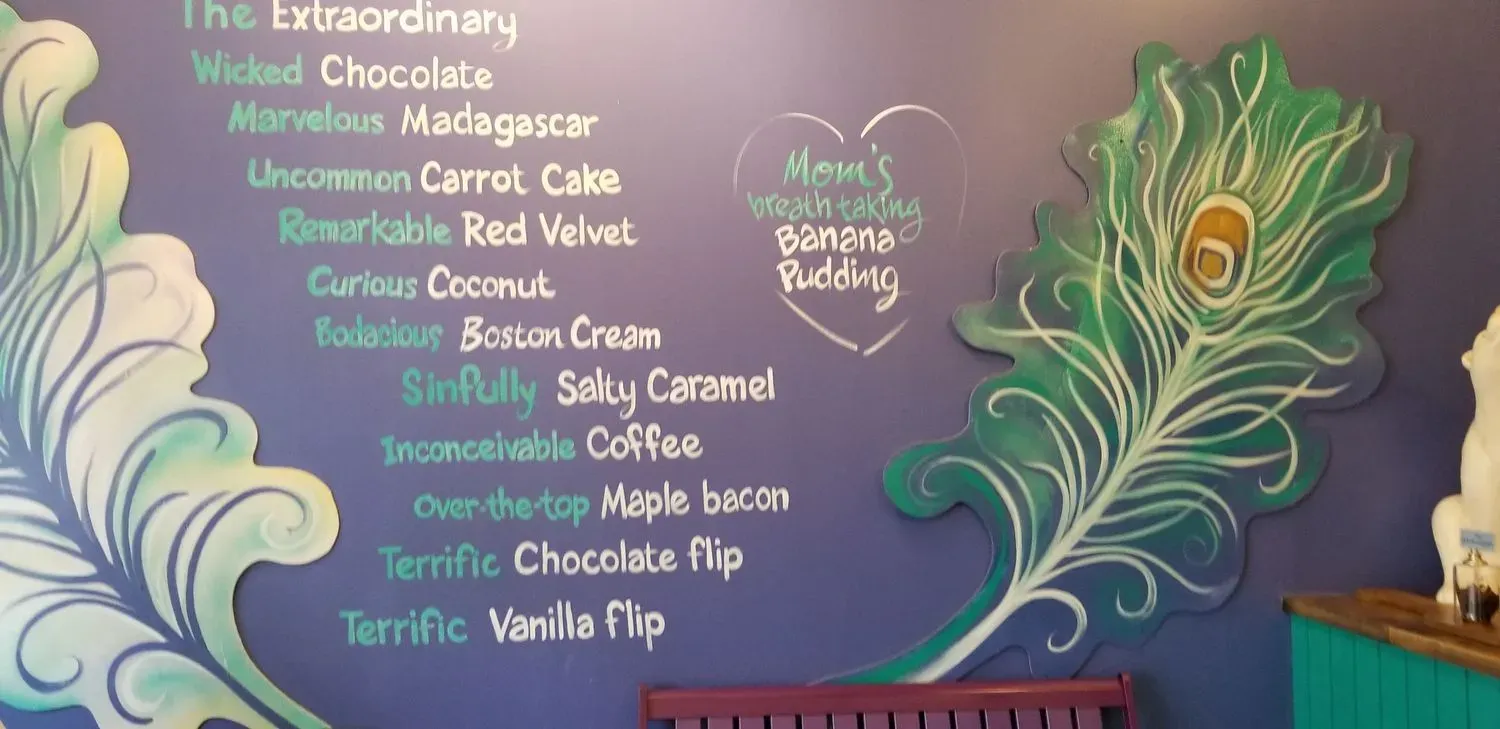 The Extraordinary
Wicked Chocolate
Marvelous Madagascar
Uncommon Carrot Cake
Remarkable Red Velvet
Curious Coconut
Bodacious Boston Cream
Sinfully Salty Caramel
Inconceivable Coffee
Over-the-top Maple bacon
Terrific Chocolate flip
Terrific Vanilla flip
Mom's
breathtaking
Banana
Pudding